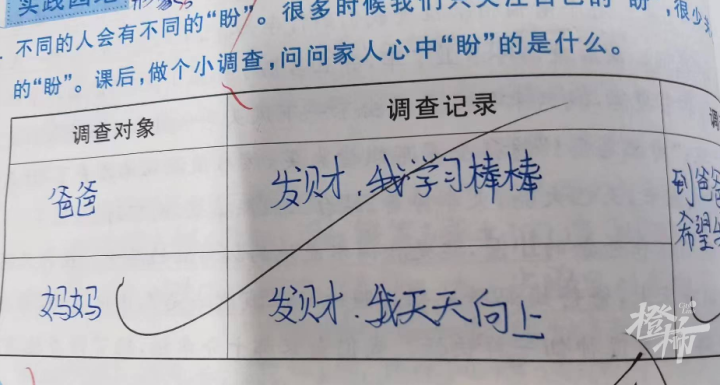 实践园地
不同的人会有不同的“盼”。很多时候我们只关注自己的“盼”,很少关
的“盼”。课后,做个小调查,问问家人心中“盼”的是什么。
调查对象 调查记录 调
爸爸 发财.我学习棒棒 到爸爸
希望
妈妈 发财.我天天向上
橙柿